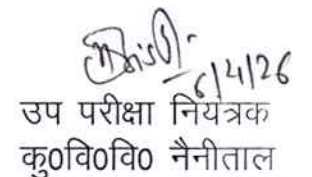 6/4/26
उप परीक्षा नियंत्रक
कु0वि0वि0 नैनीताल